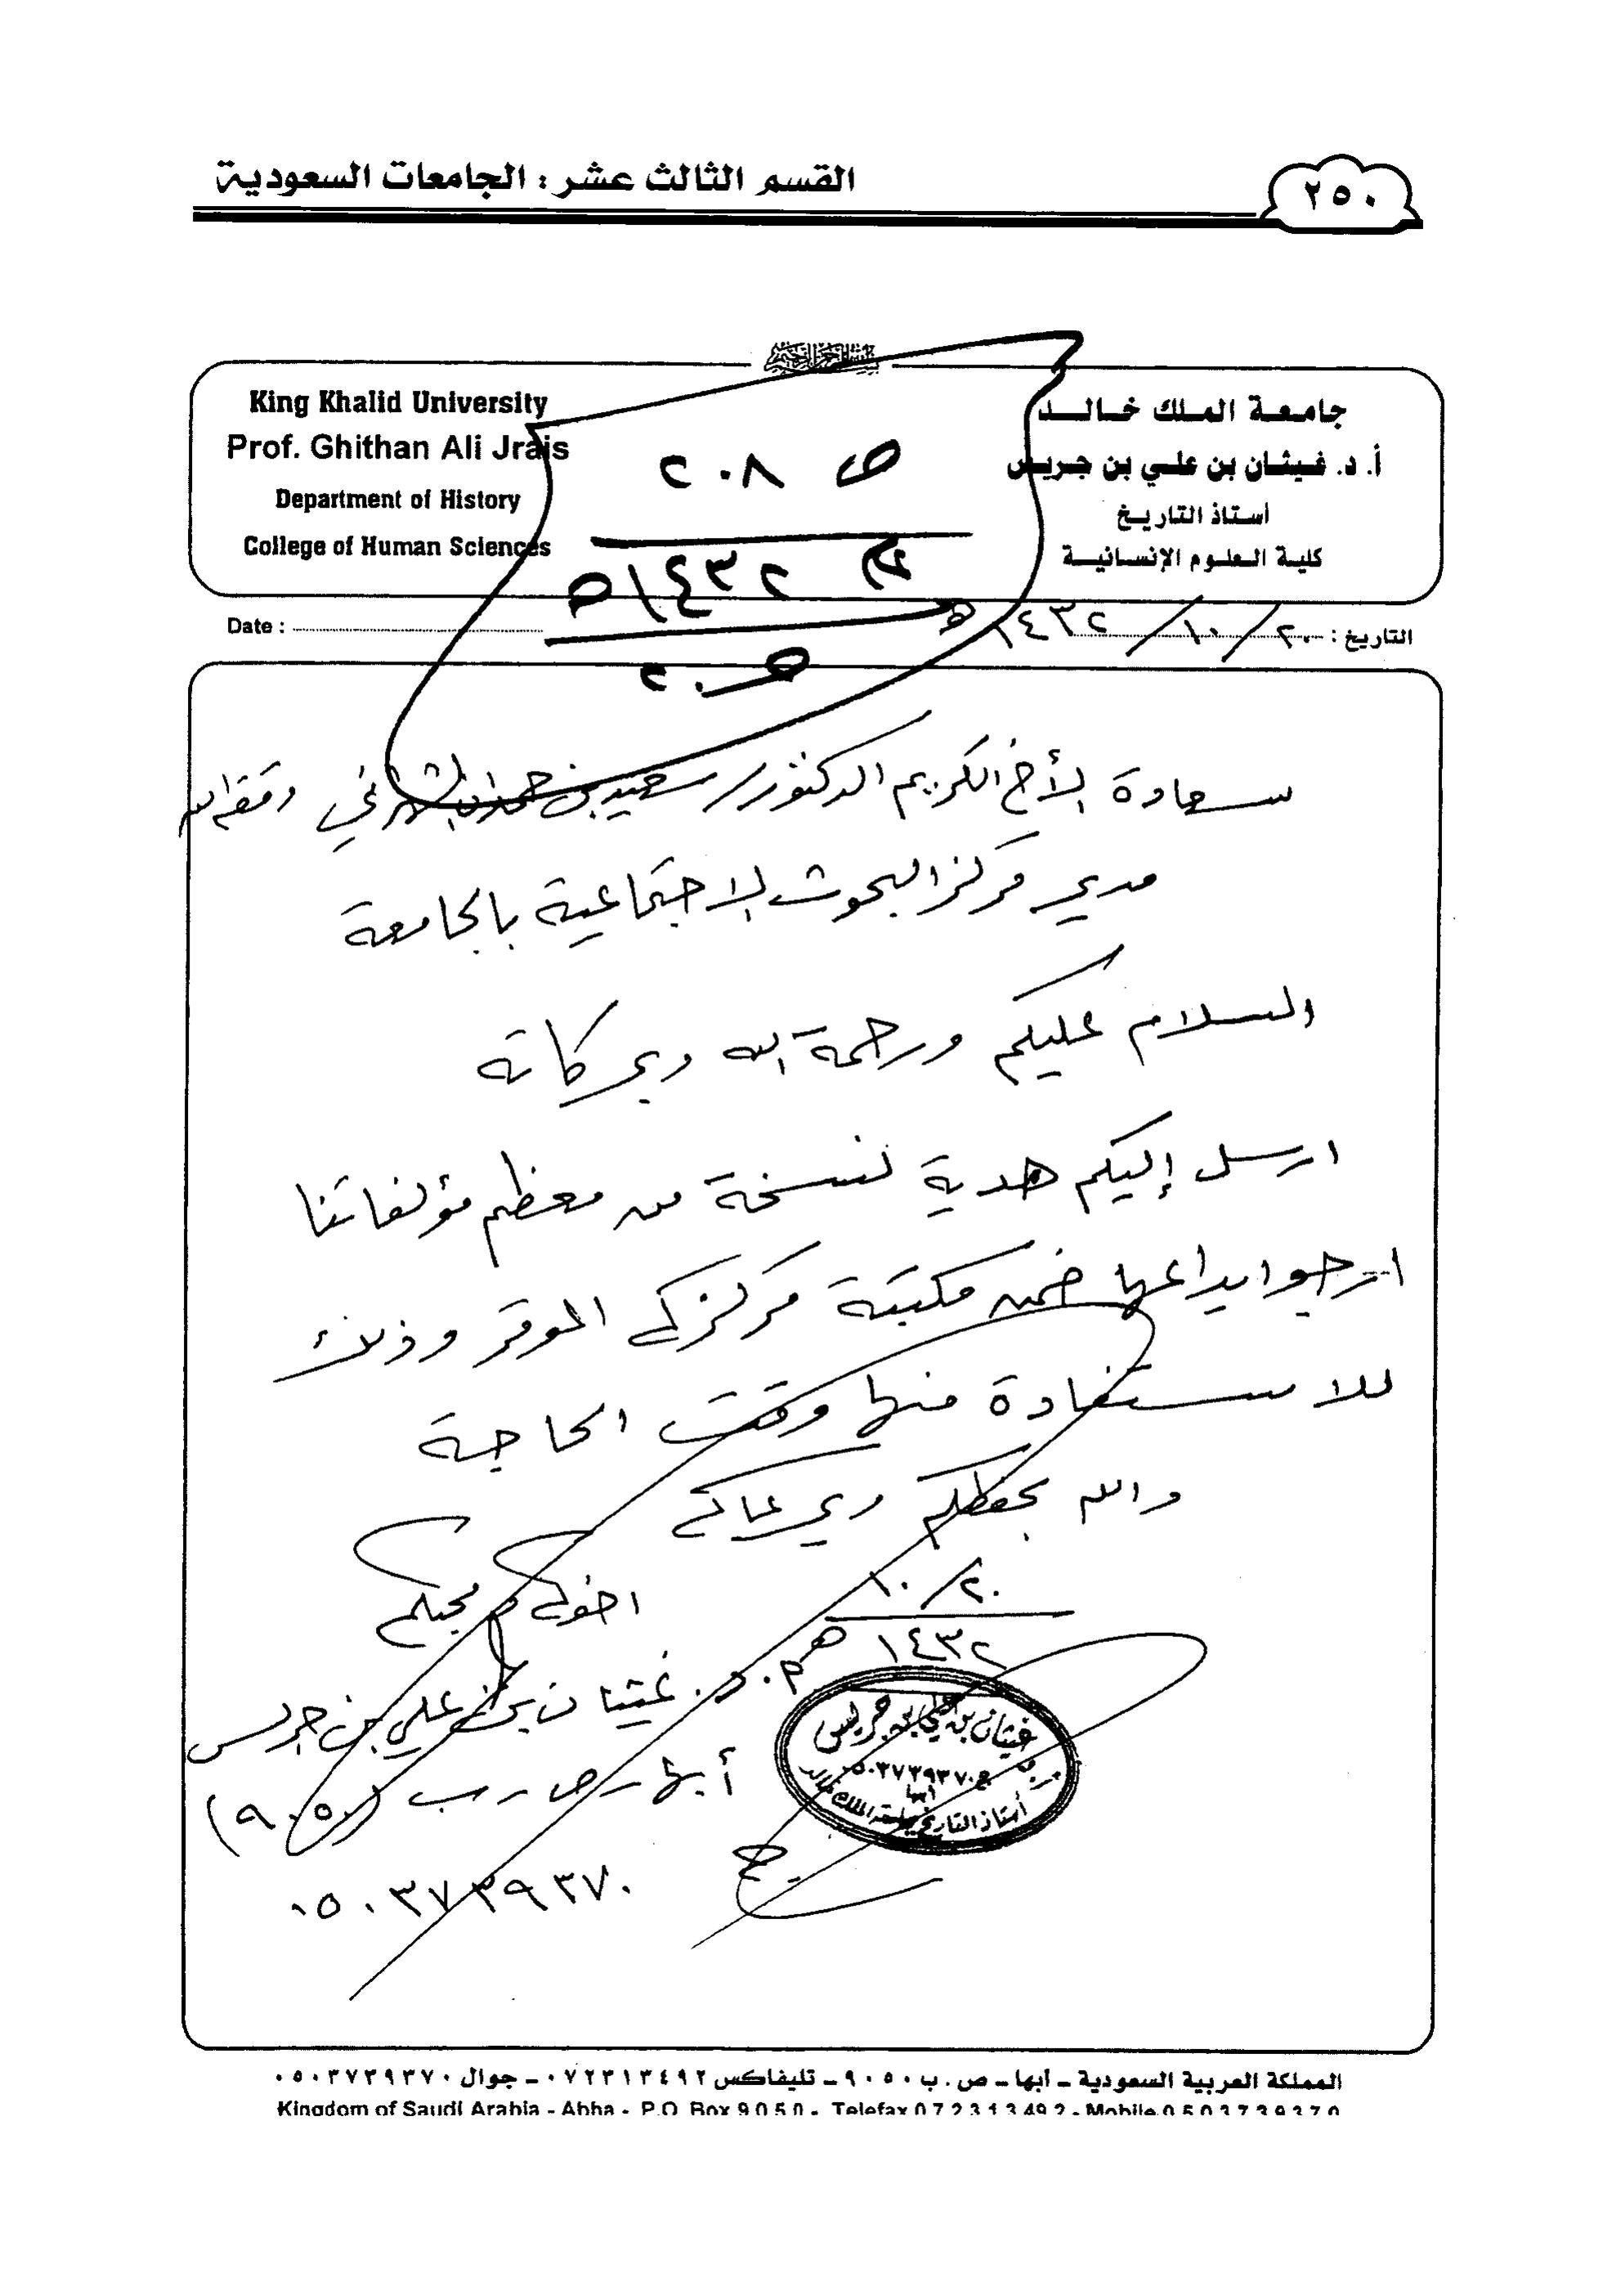 ٢٥٠
القسم الثالث عشر : الجامعات السعودية
King Khalid University
Prof. Ghithan Ali Jrais
Department of History
College of Human Sciences
جامعة الملك خالد
أ. د. غيثان بن علي بن جريس
أستاذ التاريخ
كلية العلوم الإنسانية
ص ٢٠٨
م ١٤٣٢ه
Date :
التاريخ : ٢٠/١٠/١٤٣٢ه
سعادة الأخ الكريم الدكتور/ سعيد بن حمدان الشهراني وفقه الله
مدير مركز البحوث الاجتماعية بالجامعة
السلام عليكم ورحمة الله وبركاته
ارسل إليكم هدية نسخة من معظم مؤلفاتنا
ارجو ايداعها ضمن مكتبة مركزكم الموقر وذلك
للاستفادة منها وقت الحاجة
والله يحفظكم ويرعاكم
٢٠/١٠
١٤٣٢ه
اخوكم ومحبكم
أ.د. غيثان بن علي بن جريس
أبها ـ ص ـ ب (٩٠٥٠)
ج ٠٥٠٣٧٣٩٣٧٠
غيثان بن علي بن جريس
ج ٠٥٠٣٧٣٩٣٧٠
أبها
أستاذ التاريخ بجامعة الملك خالد
المملكة العربية السعودية ـ أبها ـ ص . ب ٩٠٥٠ ـ تليفاكس ٠٧٢٣١٣٤٩٢ ـ جوال ٠٥٠٣٧٣٩٣٧٠
Kingdom of Saudi Arabia - Abha - P.O. Box 9050 - Telefax 072313492 - Mobile 0503739370